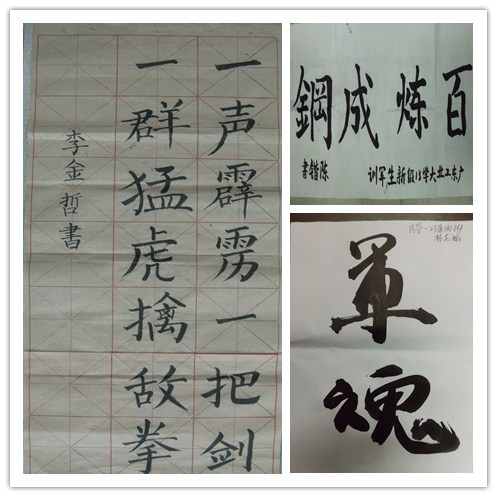 一声霹雳一把剑
一群猛虎擒敌拳
李金哲書
百炼成鋼
广东工业大学13级新生军训
陈锴書
軍魂